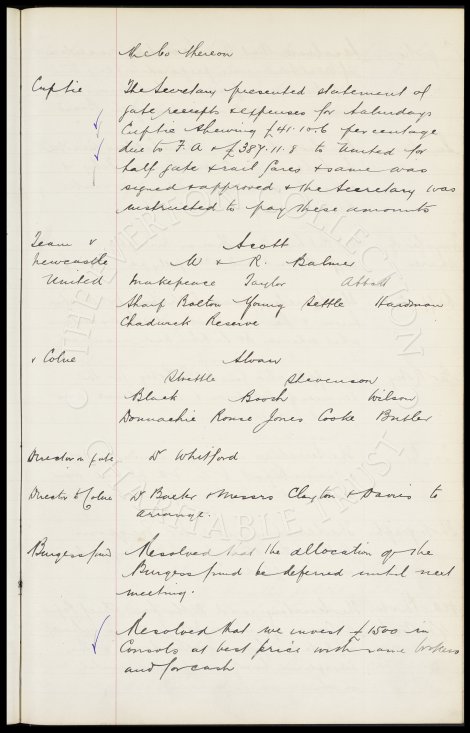 thereon
Cuptie The Secretary presented statement of
gate receipts & expenses for Saturdays
Cuptie shewing £41.10.6 percentage
due to F.A & £387.11.8 to United for
half gate & rail fares & same was
signed & approved & the Secretary was
instructed to pay these amounts
Team v Scott
Newcastle W & R. Balmer
United Makepeace Taylor Abbott
Sharp Bolton Young Settle Hardman
Chadwick Reserve
v Colne Sloan
Strettle Stevenson
Black Booth Wilson
Donnachie Rouse Jones Cooke Butler
Director in gate Dr Whitford
Director to Colne Dr Baxter & Messrs Clayton & Davies to
arrange.
Burgess fund Resolved that the allocation of the
Burgess fund be deferred until next
meeting.
Resolved that we invest £1500 in
Consols at best price with same brokers
and for cash
THE EVERTON COLLECTION
CHARITABLE TRUST